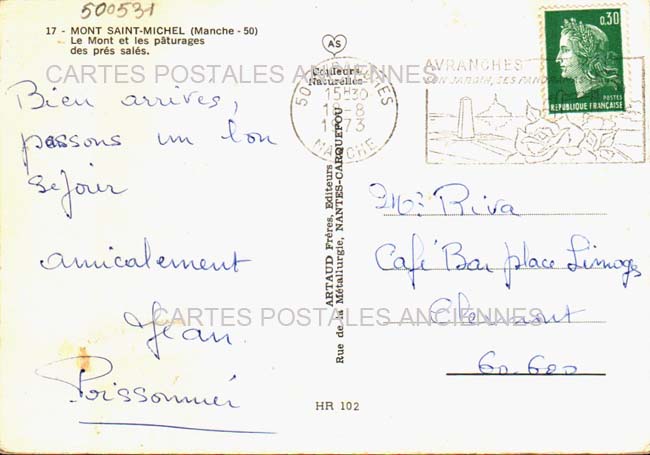 500531
17 - MONT SAINT-MICHEL (Manche - 50)
Le Mont et les pâturages
des prés salés.
AS
Couleurs
Naturelles
CARTES POSTALES ANCIENNES
Bien arrivés,
passons un bon
séjour
amicalement
Jean
Poissonnier
50 AVRANCHES
15H30
8
1973
MANCHE
AVRANCHES
SON JARDIN, SES PANORAMAS
0,30
POSTES
REPUBLIQUE FRANÇAISE
ARTAUD Frères, Editeurs
Rue de la Métallurgie, NANTES-CARQUEFOU
Mr Riva
Café Bar place Limoges
Clermont
60.600
CARTES POSTALES ANCIENNES
HR 102